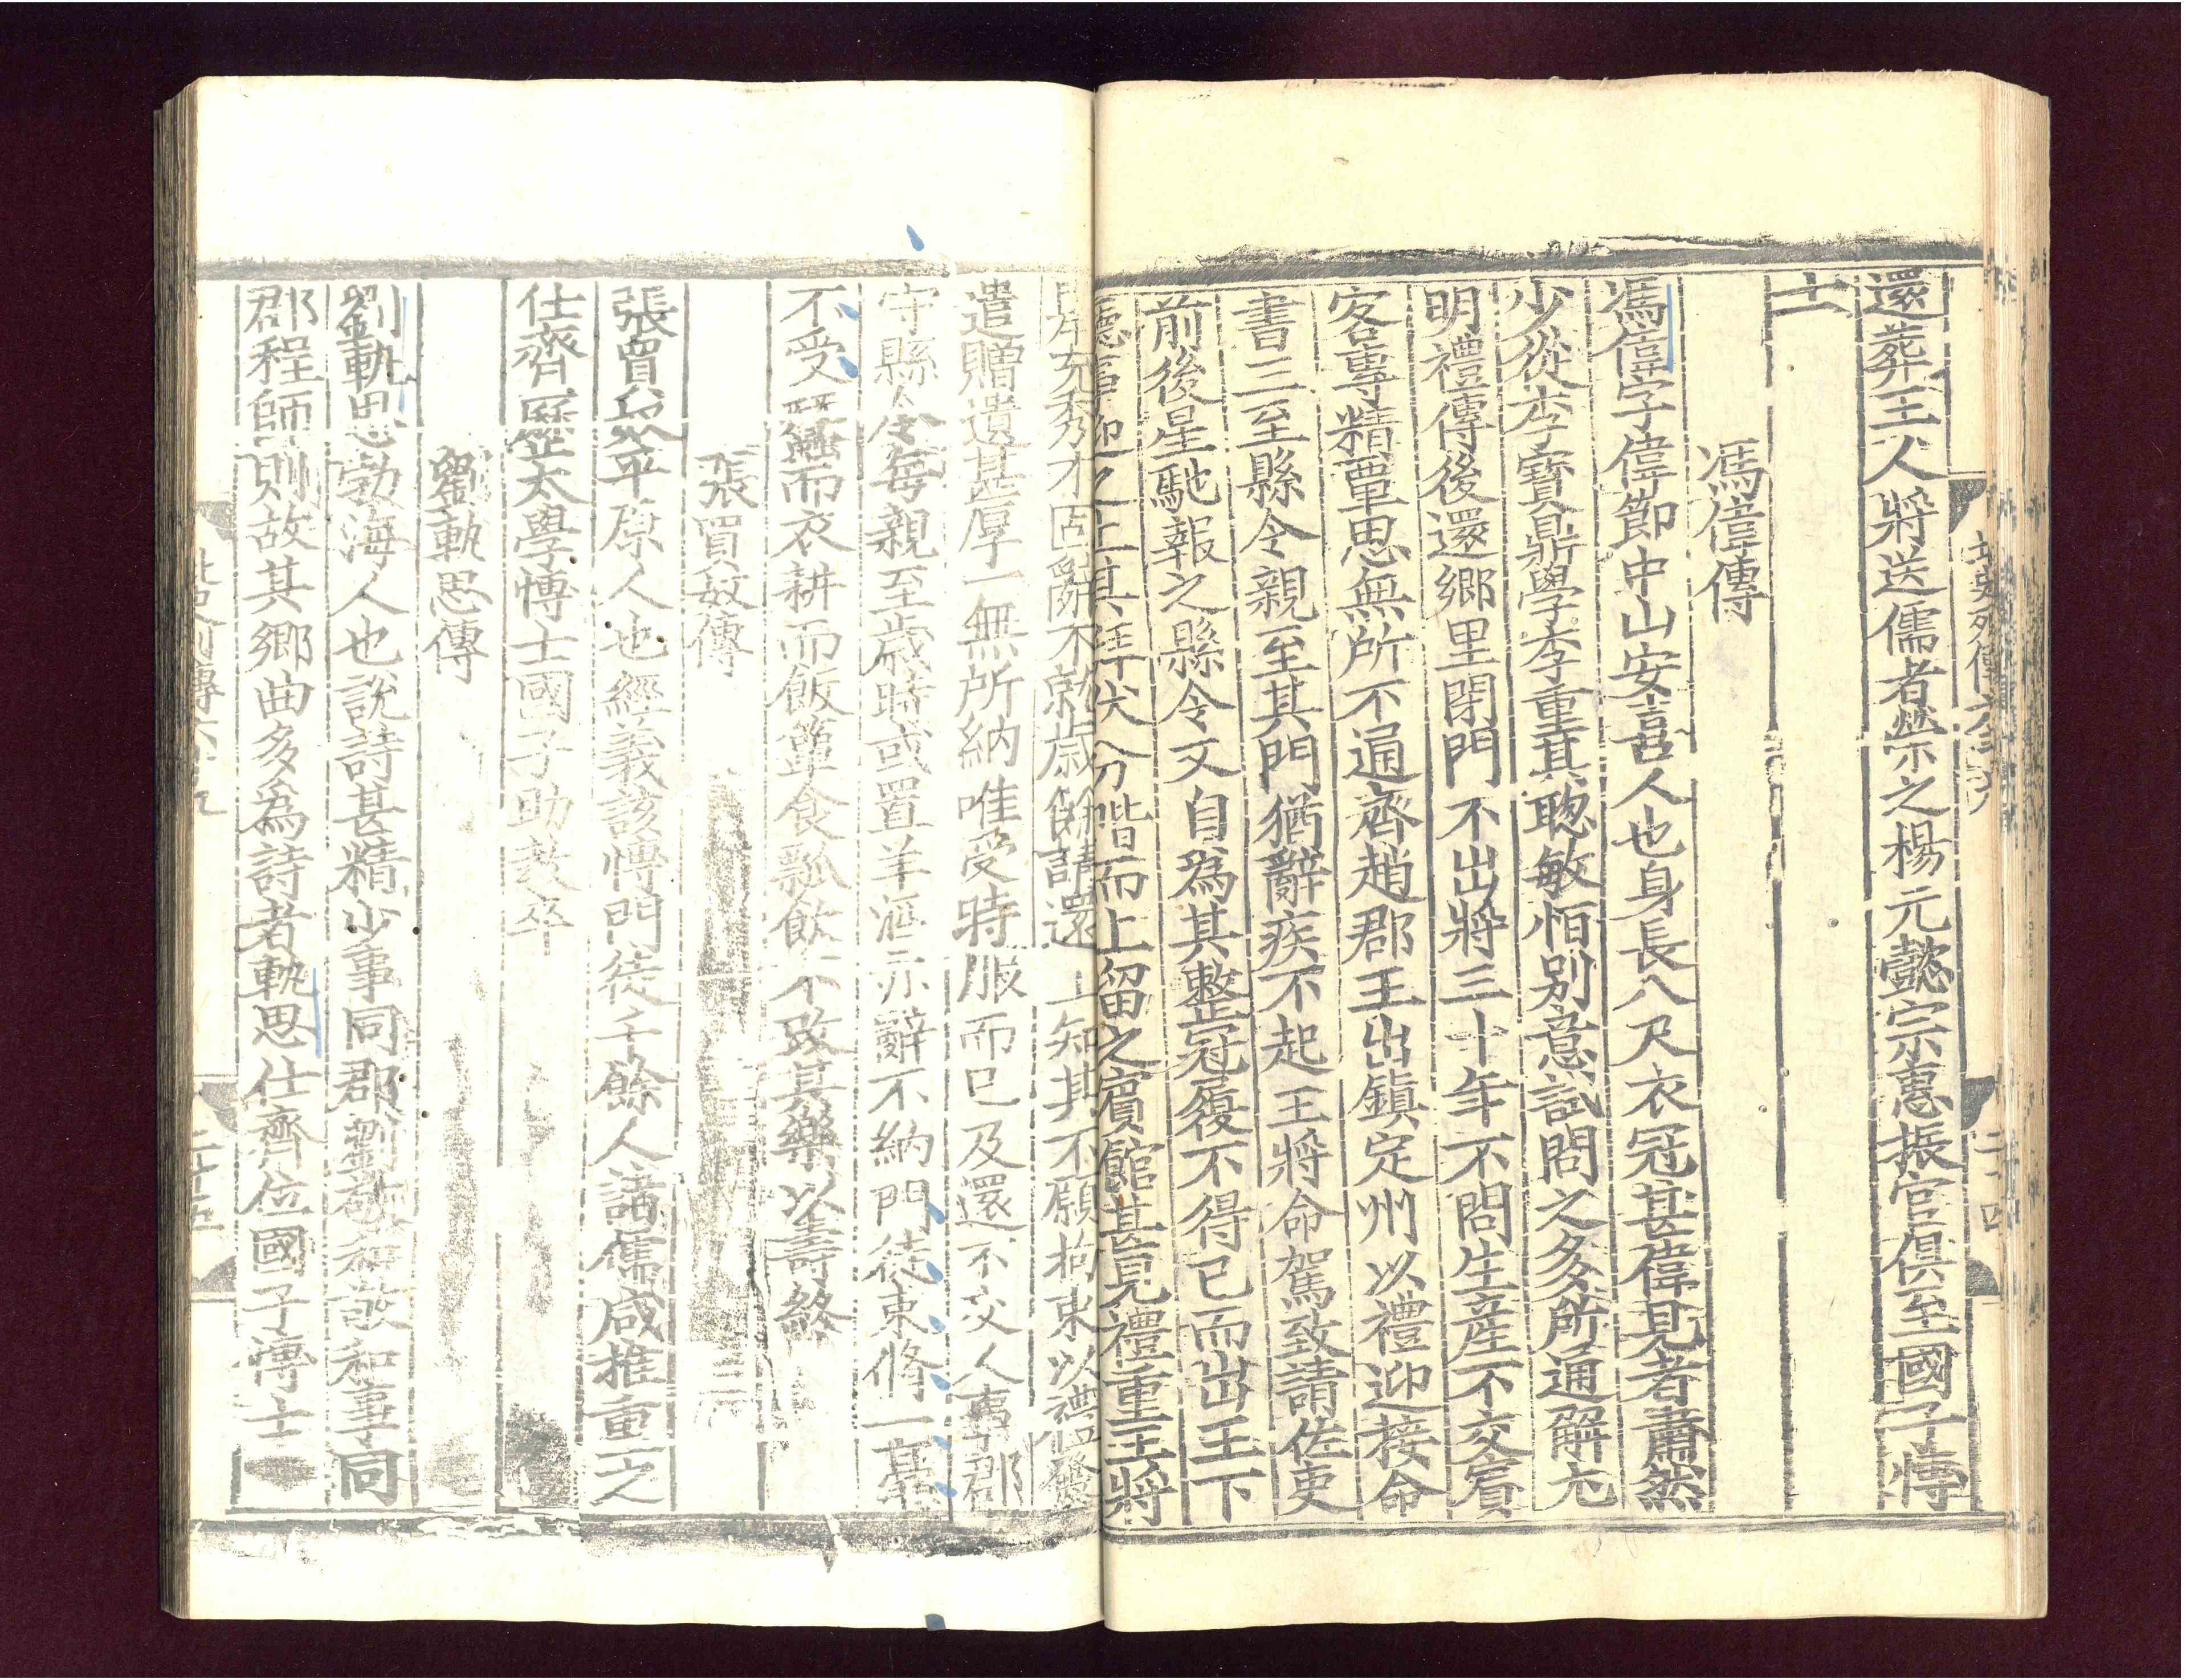 還葬王人將送儒者榮之楊元懿宗惠振官俱至國子博
士
馮偉傳
馮偉字偉節中山安喜人也身長八尺衣冠甚偉見者肅然
少從李寶鼎學李重其聦敏恒别意試問之多所通解尤
明禮傳後還郷里閉門不出將三十年不問生産不交賔
客專精覃思無所不通齊趙郡王出鎮定州以禮迎接命
書三至縣令親至其門猶辭疾不起王將命駕致請佐吏
前後星馳報之縣令又自為其整冠履不得已而出王下
聽事迎之止其拜伏分階而上留之賔館甚見禮重王將
舉充秀才固辭不就歲餘請還王知其不願拘束以禮發
遣贈遺甚厚一無所納唯受時服而已及還不交人事郡
守縣令每親至歲時或置羊酒亦辭不納門徒束脩一毫
不受蠶而衣耕而飯簞食瓢飲不改其樂以壽終
張買奴傳
張買奴平原人也經義該博門徒千餘人諸儒咸推重之
仕齊歷太學博士國子助教卒
劉軌思傳
劉軌思勃海人也說詩甚精少事同郡劉敬和敬和事同
郡程師則故其郷曲多為詩者軌思仕齊位國子博士
北史列傳六十九
二十五